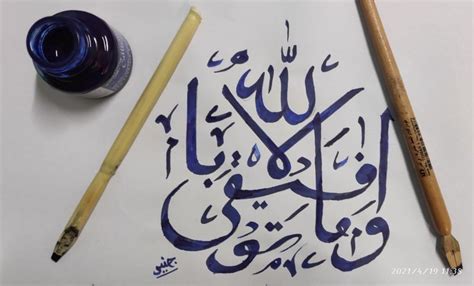 وما توفيقي إلا بالله
2021/4/19 11:38